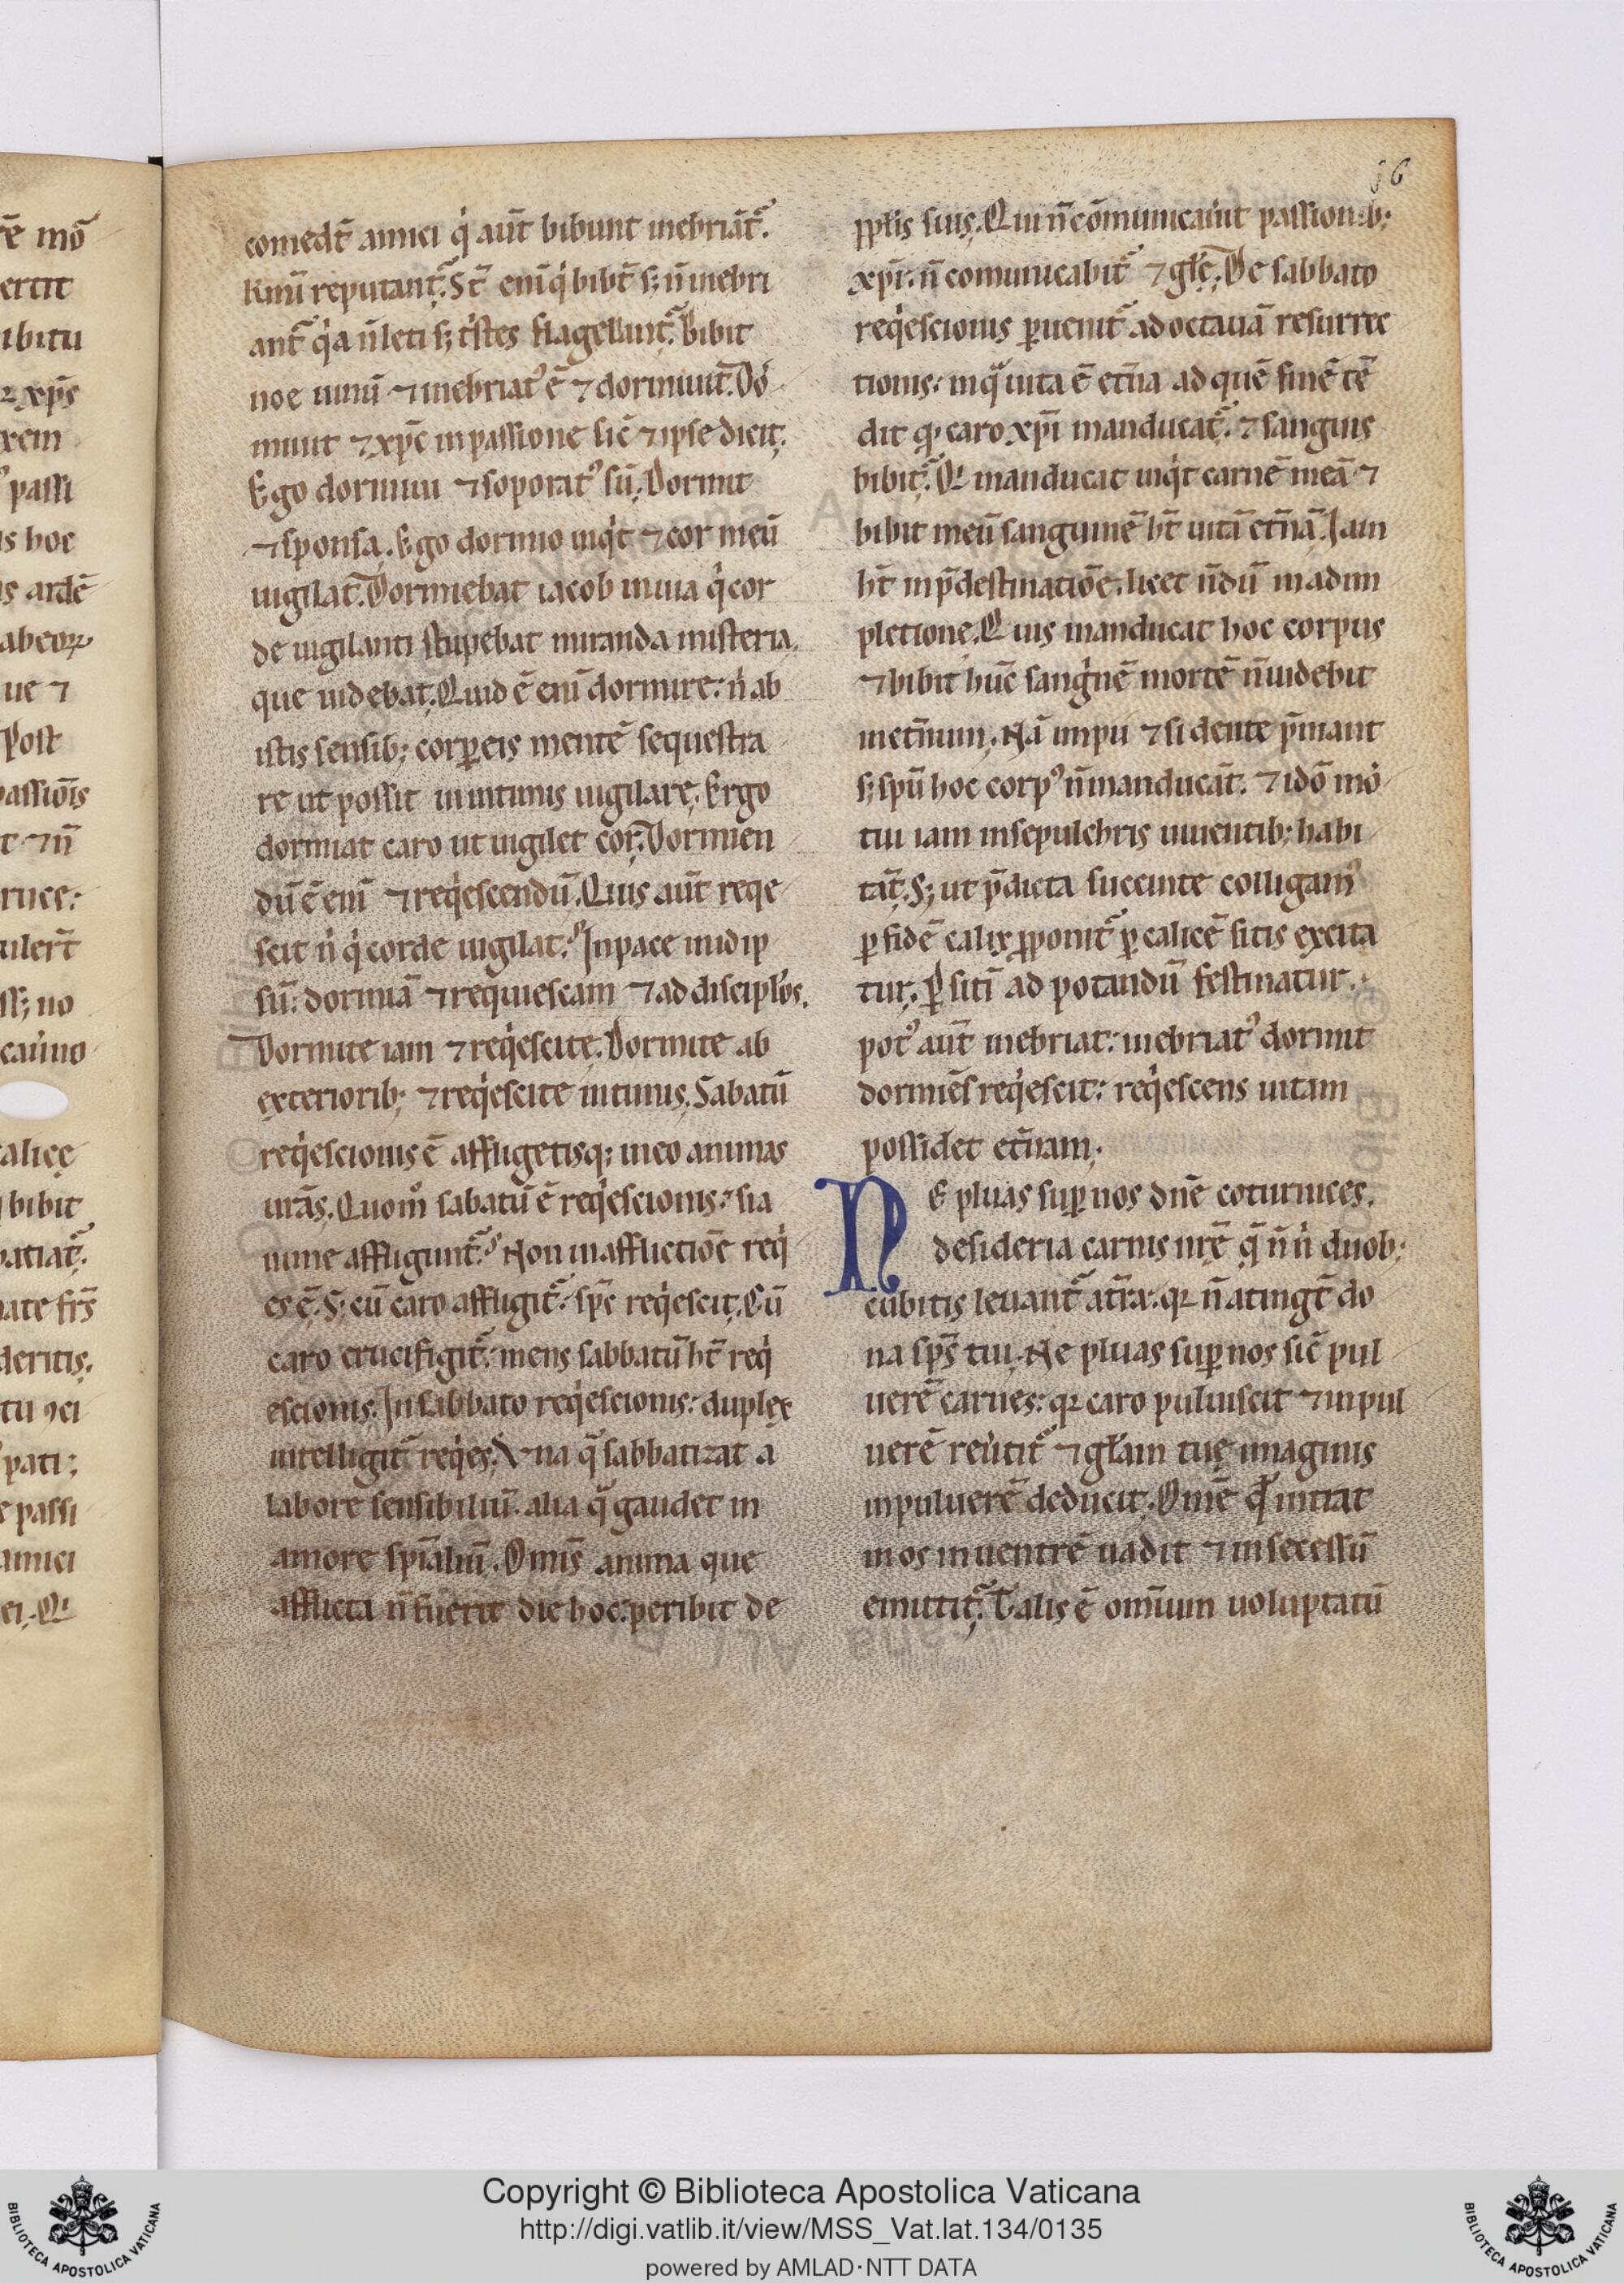 66
comedt̄ amici q̇ aut̄ bibunt inebriāt᷑.
k̄mi reputant᷑. St̄ eni̅ q̇ bibt̄ s; n̄ inebri
ant᷑ q̇a n̄ leti s; tˈstes flagellunt᷑. Bibit
noe uinū ⁊ inebriatꝰ ē ⁊ dormiuit. Dorˈ
miuit ⁊ xpc̄ in passione sic̄ ⁊ ipse dicit.
Ego dormiui ⁊ soporatꝰ sū. Dormit
⁊ sponsa. Ego dormio inq̇t ⁊ cor meū
uigilat. Dormiebat iacob in uia q̇ cor
de uigilanti stupebat miranda misteria.
que uidebat. Quid ē eni̅ dormire: n̍ ab
istis sensib; corꝑeis mentē sequestra
re ut possit in intimis uigilare. Ergo
dormiat caro ut uigilet cor. Dormien
dū ē eni̅ ⁊ req̇escendū. Quis aut̄ reqe
scit n̍ q̇ corde uigilat? In pace in idip
sū: dormiā ⁊ requiescam ⁊ ad discipłos.
Dormite iam ⁊ req̇escite. Dormite ab
exteriorib; ⁊ req̇escite intimis. Sabatū
req̇escionis ē affligetisq; in eo animas
urās. Quom̊ sabatū ē req̇escionis: si a
nime affligunt᷑? Non in afflictiōe req̇
es ē. S; cū caro affligit᷑: spc̄ req̇escit. Cū
caro crucifigit᷑: mens sabbatū ht̄ req̇
escionis. In sabbato req̇escionis: duplex
intelligit᷑ req̇es. Vna q̄ sabbatizat a
labore sensibiliū. alia q̄ gaudet in
amore spi̅aliū. Omīs anima que
afflicta n̄ fuerit die hoc: peribit de
ppłis suis. Qui n̄ cōmunicaůit passionib;
xpi̅: n̄ comunicabit᷑ ⁊ głe. De sabbato
req̇escionis ꝑuenit᷑ ad octauā resurrec
tionis: in qͣ uita ē et̄na ad quē finē tē
dit qꝫ caro xpi̅ manducat᷑. ⁊ sanguis
bibit᷑. Qi manducat inq̇t carnē meā ⁊
bibit meū sanguinē ht̄ uitā et̄nā. Iam
ht̄ in p̄destinatiōe. licet n̄dū in adim
pletione. Quis manducat hoc corpus
⁊ bibit hūc sang̍nē mortē n̄ uidebit
in et̄num. Nā impii ⁊ si dente p̄mant
s; spū hoc corpꝰ n̄ manducāt. ⁊ idō morˈ
tui iam in sepulchris uiuentib; habi
tāt. S; ut p̄dicta succincte colligamꝰ
ꝑ fidē calix ꝓponit᷑ ꝑ calicē sitis excita
tur. ꝑ sitī ad potandū festinatur.
potꝰ aut̄ inebriat: inebriatꝰ dormit
dormiēs req̇escit: req̇escens uitam
possidet et̄nam.
NE pluas suꝑ nos dnē coturnices.
desideria carnis nrē q̄ n̄ n̍ duob;
cubitis leuant᷑ a t̄ra: qꝛ n̄ atingt̄ do
na sps̄ tui. Ne pluas suꝑ nos sic̄ pul
uerē carnes: qꝛ caro puluis cit ⁊ in pul
uerē reůtit᷑ ⁊ głam tuę imaginis
in puluerē deducit. Om̄e qd̄ intrat
in os in uentrē uadit ⁊ in secessū
emittit᷑. Talis ē omīum uoluptatū
Copyright © Biblioteca Apostolica Vaticana
http://digi.vatlib.it/view/MSS_Vat.lat.134/0135
powered by AMLAD·NTT DATA
BIBLIOTECA APOSTOLICA VATICANA
BIBLIOTECA APOSTOLICA VATICANA